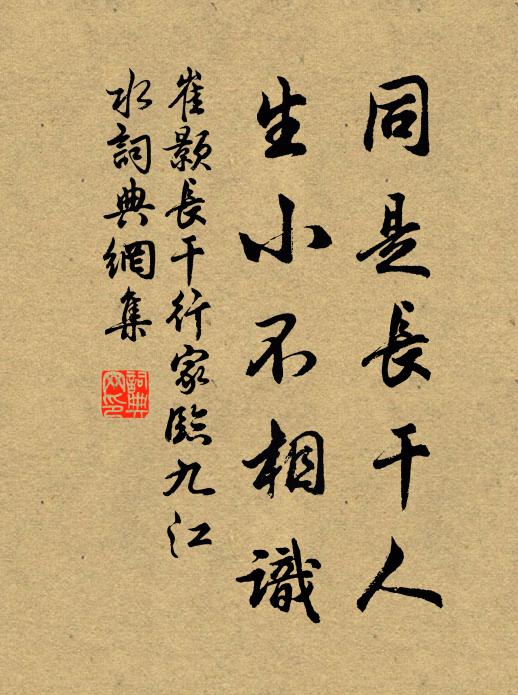 同是長干人
生小不相識
崔顥長干行家臨九江
水詞典網集
詞典
網印